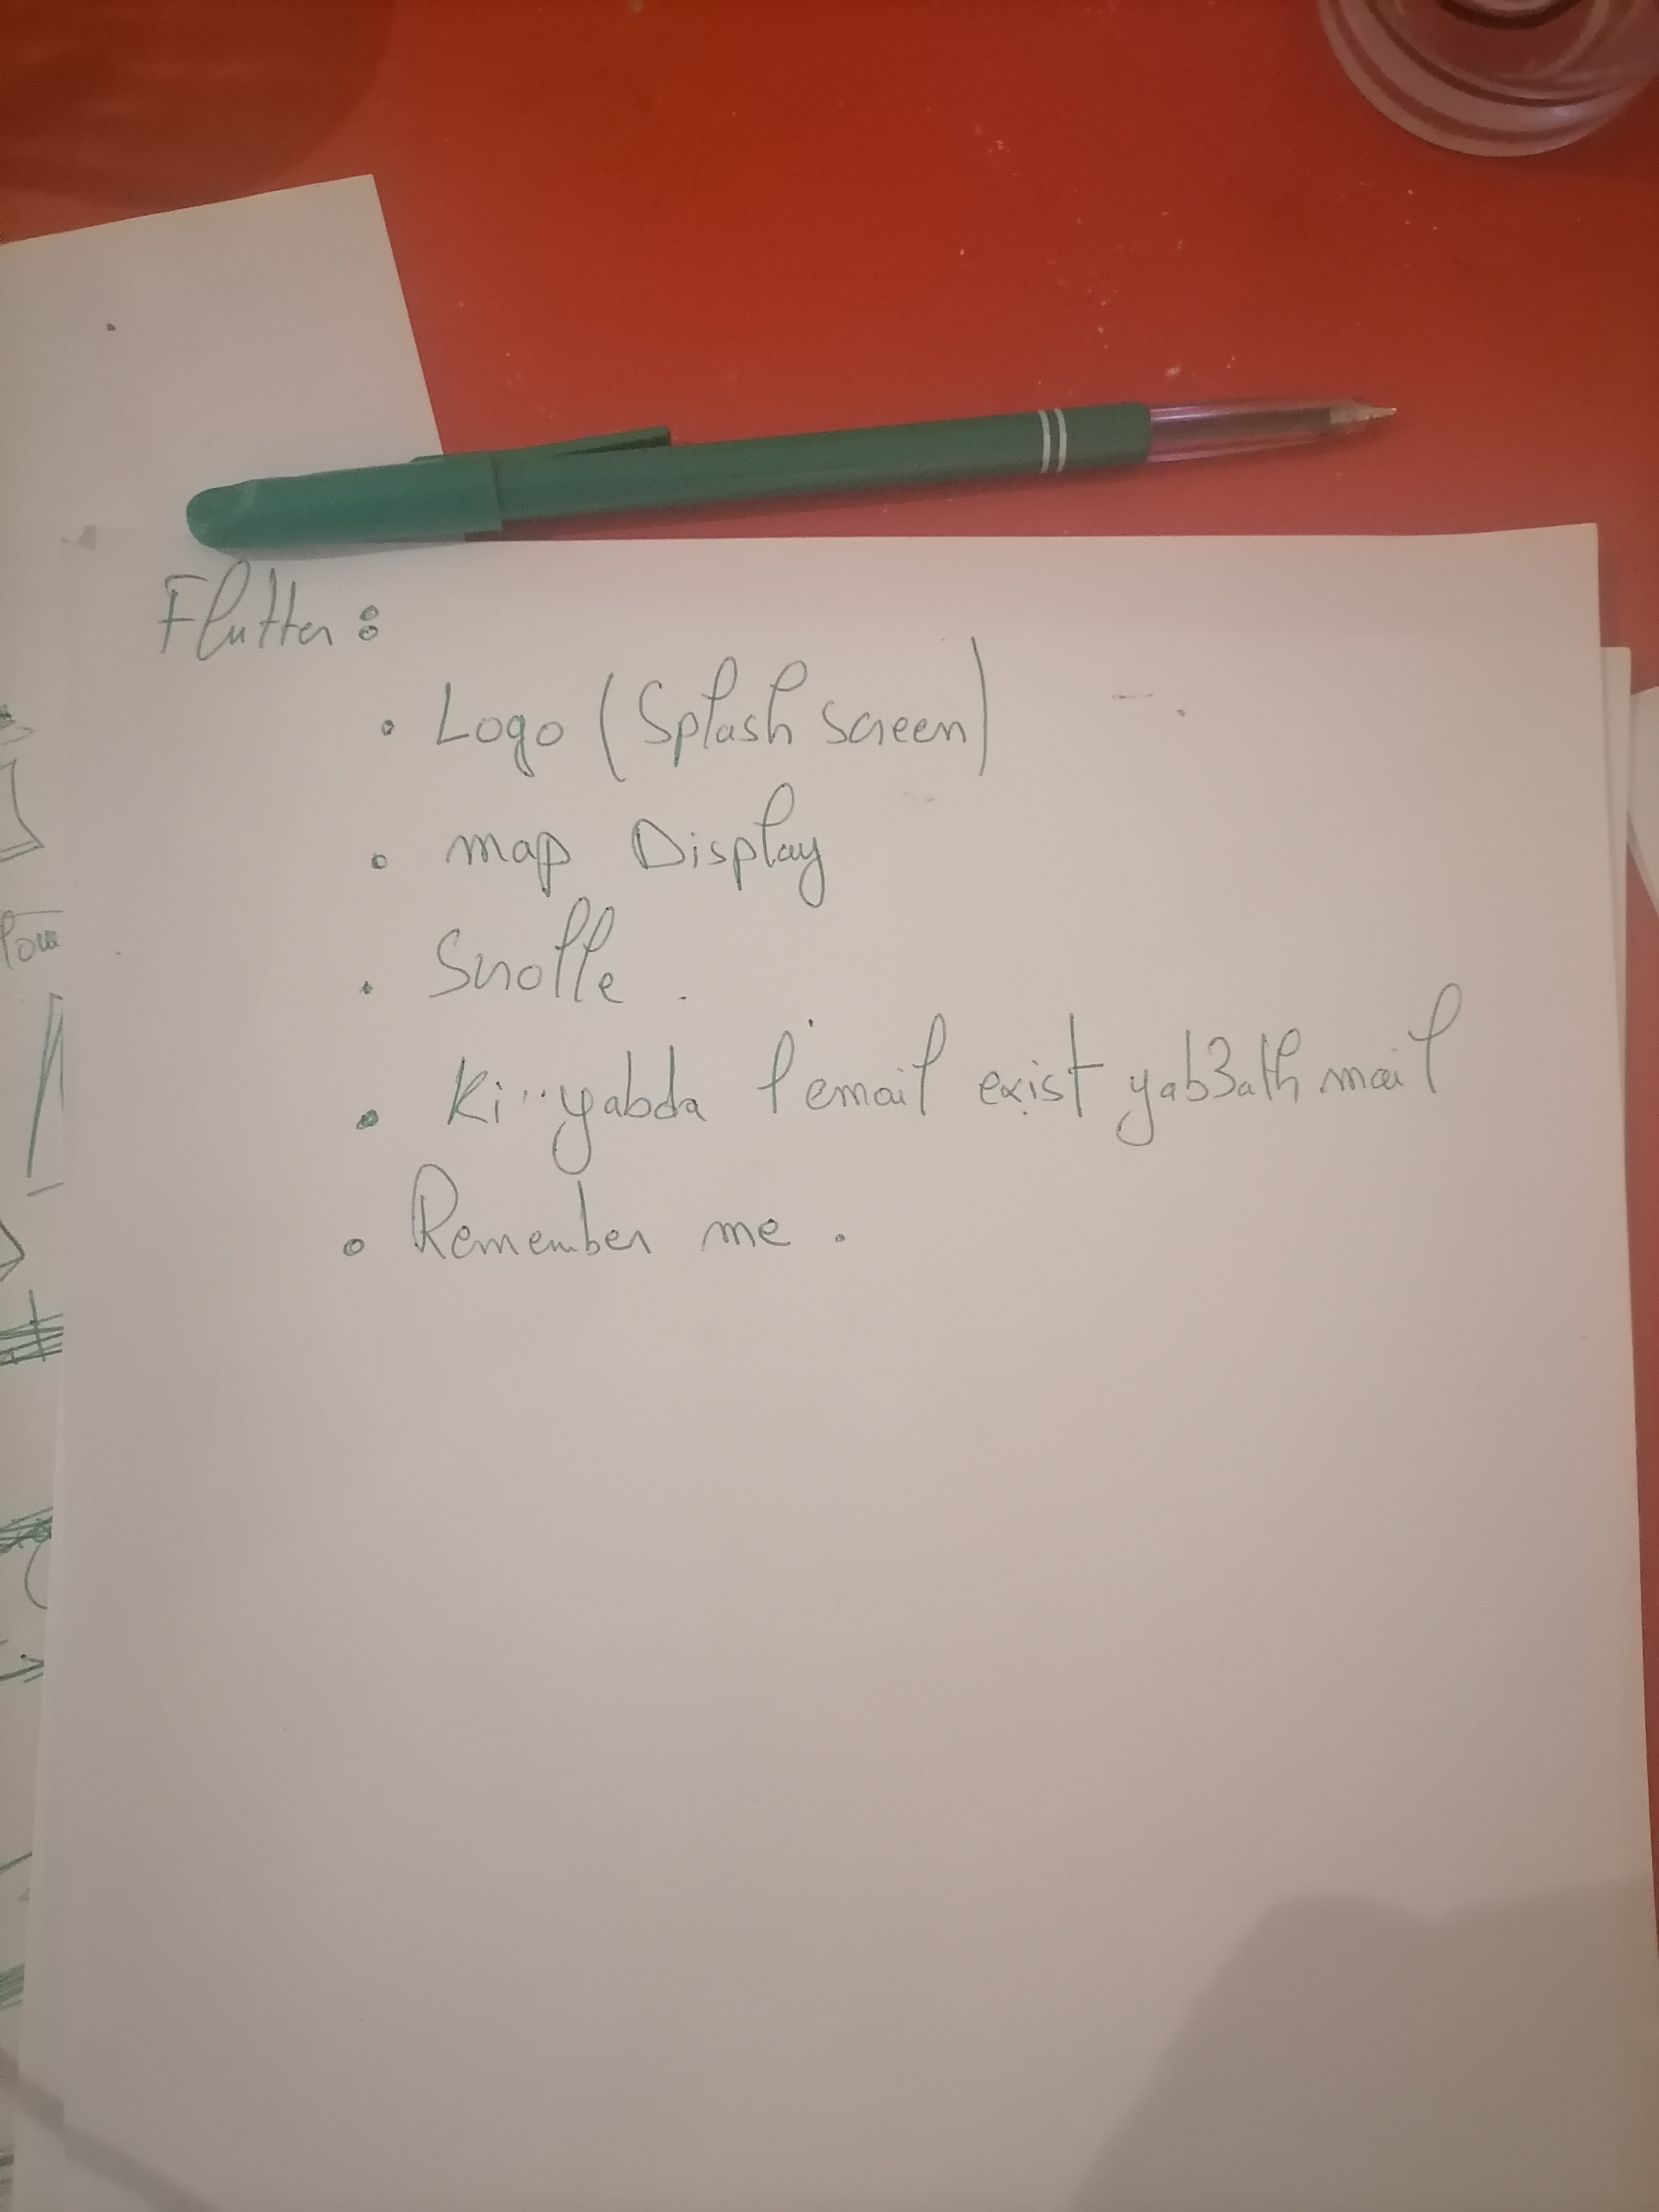 Flutter :
• Logo (Splash screen)
• map Display
• Scrolle .
• Ki yabda l'email exist yab3ath mail
• Remember me .